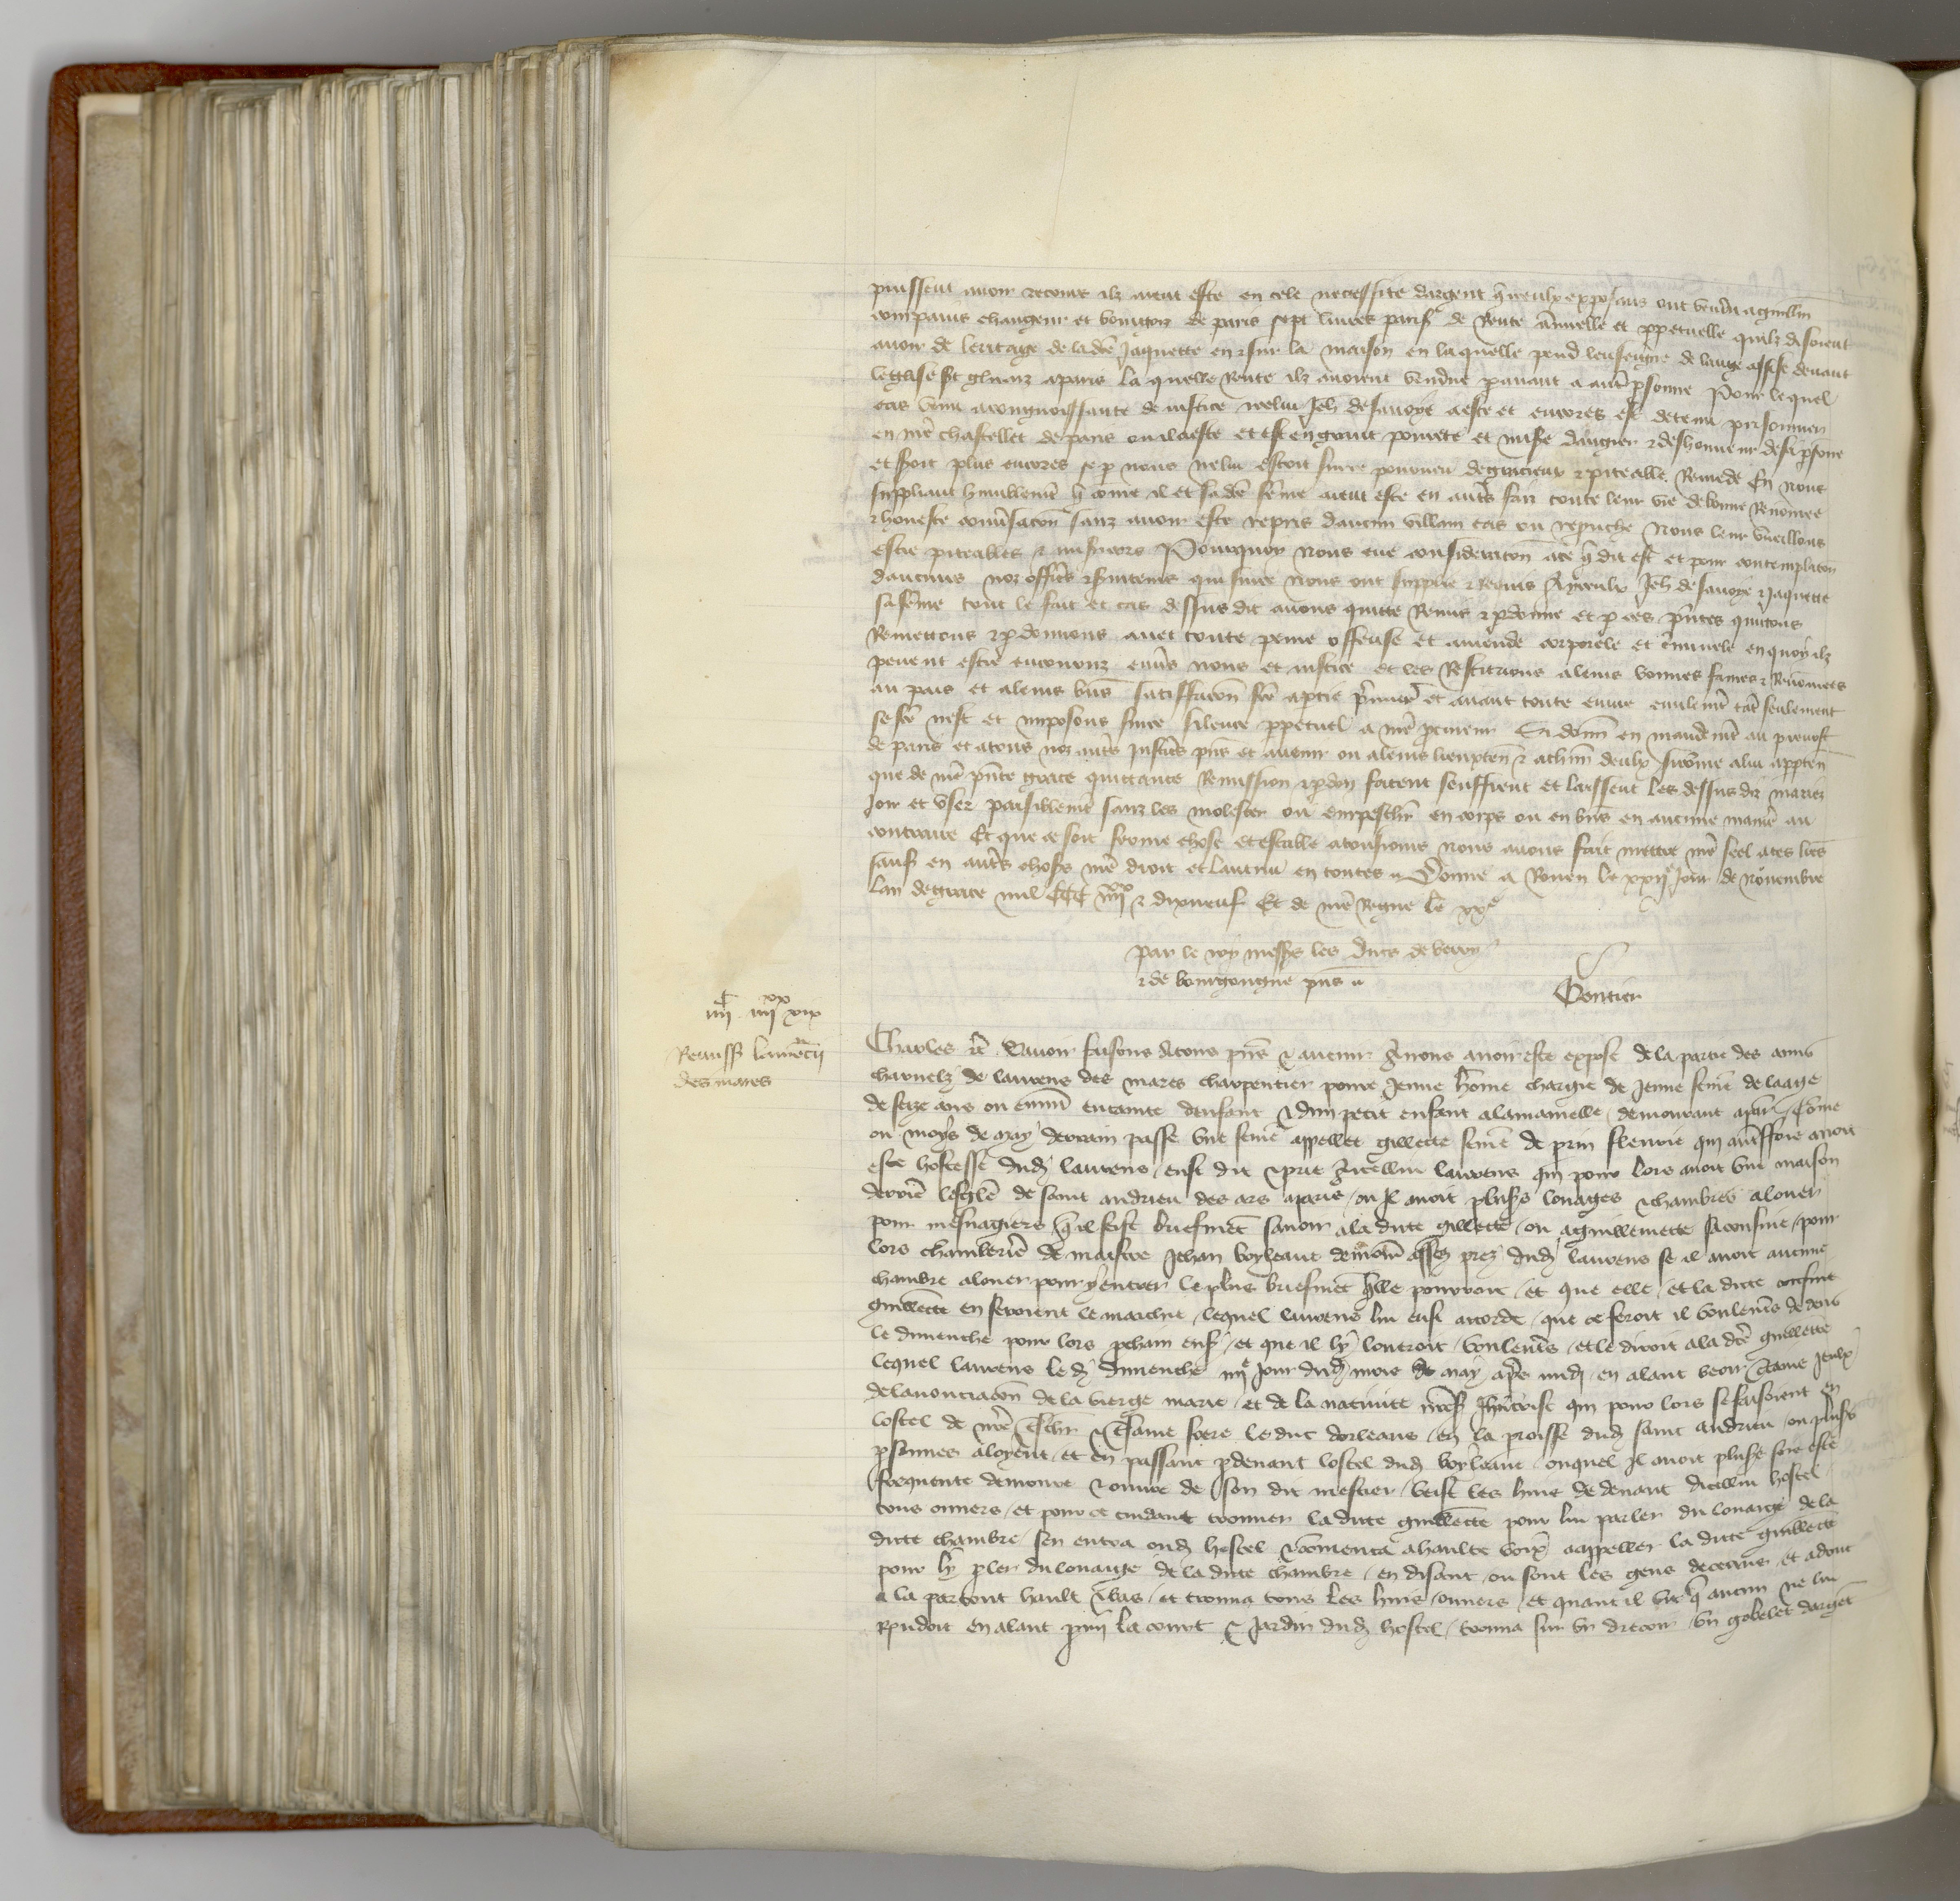 puissent avoir recouvre ilz aient este en tele necessite dargent q̃ iceulx exposans ont vendu a guillm̃
compains changeur et bourgois de paris sept livres paris̃ de Rente ãnuelle et ppetuelle quilz disoient
avoir de leritage de lad̃ Jaquette en & sur la maison en laquelle pend lenseigne de lange assise devant
leglise st a paris la quelle Rente ilz avoient vendue paravant a aut̃ psonne Pour lequel
cas venu a congnoissance de justice icelui Jeh̃ de savoye a este et encores est detenu prisonnier
en nr̃e chastellet de paris ou il a este et est en grant povrete et misẽ dangier & deshonneur de sa psõne
et seroit plus encores se p nous ne lui estoit sur ce pourveu de gracieux & piteable Remede En nous
suppliant humblemẽt q̃ cõme il et sad̃ fẽme aient este en autr̃s fais toute leur vie de bonne Renõmee
& honeste conṽsacion sanz avoir este repris daucun villain cas ou reprouche Nous leur vueillons
estre piteables & misericors Pourquoy nous eue consideracion a ce q̃ dit est et pour contemplacion
daucuns noz officiers & serviteurs qui sur ce nous ont supplie & Requis A yceulx Jeh̃ de savoye & Jaquette
sa fẽme tout le fait et cas dessus dit avons quitte Remis & pdonne et p ces pñtes quittons
Remettons & pdonnons avec toute peine offense et amende corporele et criminele en quoy ilz
pevent estre encouruz env̾s nous et justice et les Restituons a leurs bonnes fames & Renõmees
au pais et a leurs biens satisfacion fc̃e a ptie premier̃ et avant toute euvre civilemẽt tãt seulement
se fc̃e nest et imposons sur ce silence ppetuel a nr̃e procureur Si donñ en mandemẽt au prevost
de paris et a tous noz autr̃s justiciers pñs et avenir ou a leurs lieuxteñ & a chm̃ deulx si cõme a lui apptendr̃
que de nr̃e pñte grace quittance Remission & pdon facent seuffrent et laissent les dessus diz mariez
Joir et user paisiblemẽt sanz les molester ou empeschier en corps ou en biens en aucune maniere au
contraire Et que ce soit ferme chose et estable a tousjours nous avons fait mettre nr̃e seel a ces lr̃es
sauf en autr̃s choses nr̃e droit et lautrui en toutes Donne a Rouen le xxii e jour de novembre
lan de grace mil CCC iiii xx & dixneuf Et de nr̃e Regne le xx e
Par le roy messrs les ducs de berry
& de bourgongne pñs
Gontier
iiii C iiii xx xix
Remiss̃ laurẽcii
des mares
Charles &c̃ Savoir faisons a tous pñs & avenir A nous avoir este expose de la partie des amis
charnelz de laurens des mares charpentier povre jeune hõme chargie de jeune femẽ de laage
de seize ans ou environ encainte denfant & dun petit enfant a la mamelle demourant a paris Cõme
ou moys de may derrain passe une femẽ appellee gillette femẽ de prin fleurie qui autreffoiz avoit
este hostesse dud̃ laurens eust dit & prie a icellui laurens qui pour lors avoit une maison
derriere leglise de saint andrieu des ars a paris ou il avoit plusrs louages & chambres a louer
pour mesnagiers q̃ il feist briefmẽt savoir a la dicte gillette ou a guillemette sa cousine pour
lors chamberiere de maistre Jehan boyleaue demouñ assez prez dud̃ laurens se il avoit aucune
chambre a louer pour y entrer le plus briefmẽt q̃lle pourroit et que elle et la dicte cousine
guillette en feroient le marchie lequel laurens lui eust accorde que ce feroit il voulent̾s dedens
le dimenche pour lors pchain ensuĩ et que il ly loueroit voulent̾s et le diroit a la dc̃e guillette
lequel laurens le d̃ dimenche iiii e jour dud̃ mois de may apr̃s midi en alant veoir cãme Jeux
de lanonciacion de la vierge marie et de la nativite nr̃e s̃ jhũcrist qui pour lors se faisoient en
lostel de nr̃e tr̃schier & tr̃same frere le duc dorleans en la proisse dud̃ saint andrieu ou plusrs
psonnes aloyent et en passant pdevant lostel dud̃ boyleaue ouquel il avoit plusrs foiz este
frequente demoure & ouvre de son dit mestier veist les huis de devant dicellui hostel
tous ouvers et pour ce cuidant trouver la dicte guillette pour lui parler du louaige de la
dicte chambre sen entra oud̃ hostel & cõmenca a haulte voix a appeller la dicte guillette
pour ly pler du louaige de la dicte chambre en disant ou sont les gens de ceens et adont
a la partout hault & bas et trouva tous les huis ouvers et quant il vit q̃ aucun ne lui
Rpndoit en alant pmi la court & jardin dud̃ hostel trouva sur un drecoir un gobelet dargẽt